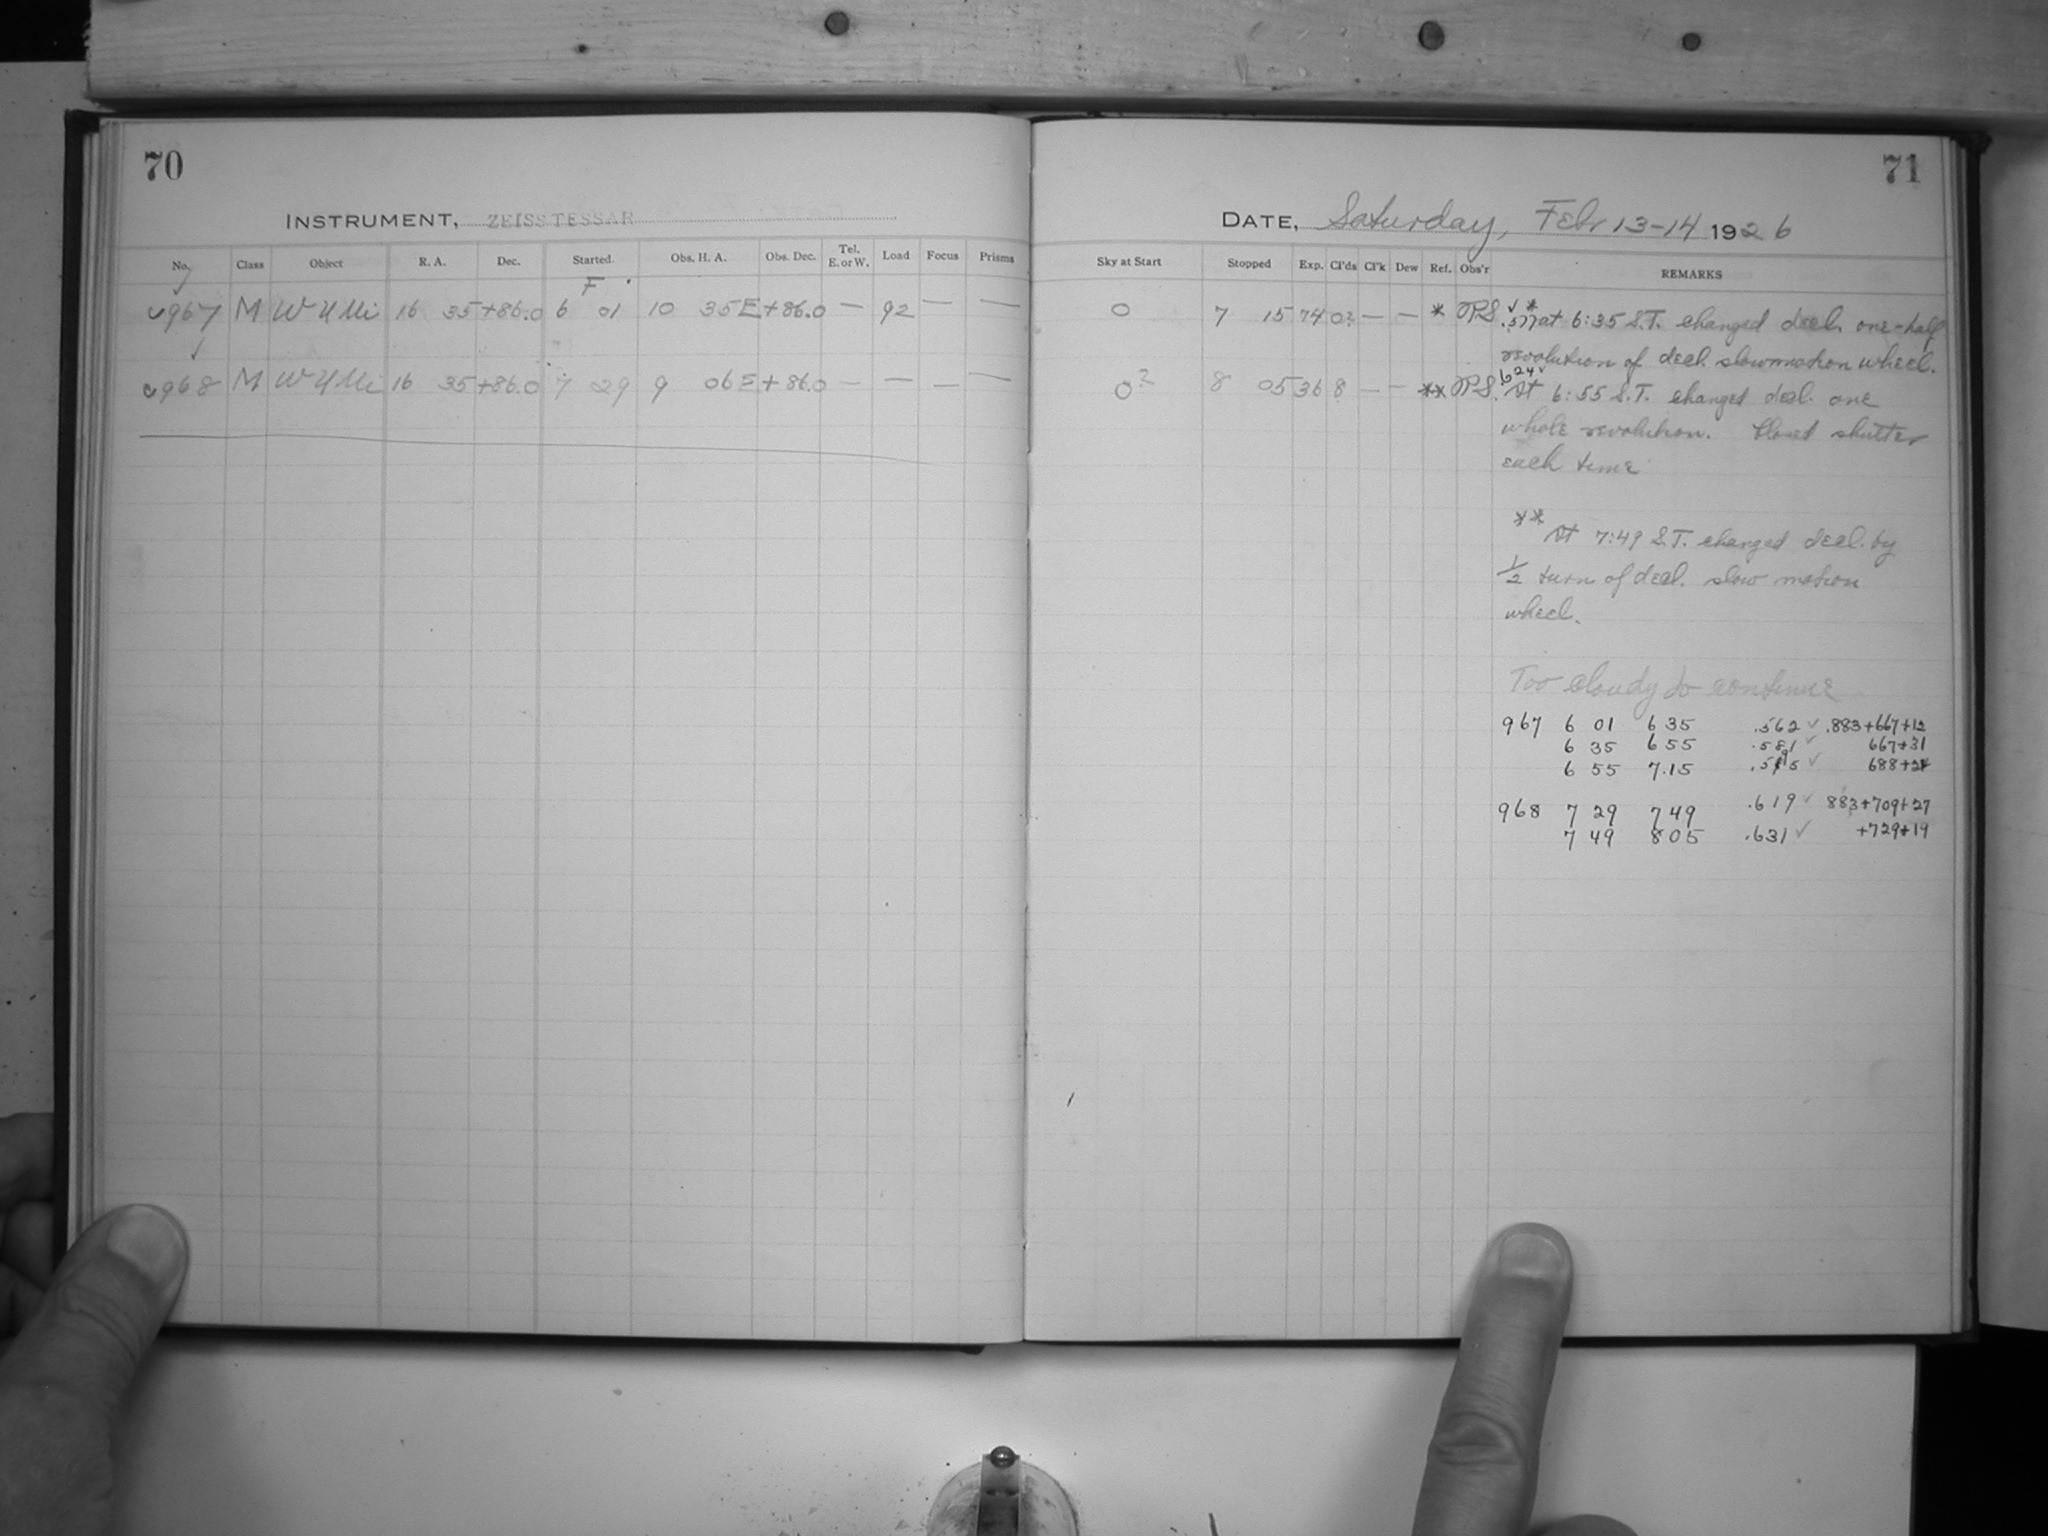 70
INSTRUMENT, ZEISS TESSAR
No. Class Object R. A. Dec. Started Obs. H. A. Obs. Dec. Tel. E. or W. Load Focus Prisms
F
967 M W U Mi 16 35 +86.0 6 01 10 35 E +86.0 — 92 — —
968 M W U Mi 16 35 +86.0 7 29 9 06 E +86.0 — — — —
71
DATE, Saturday, Feb 13-14 1926
Sky at Start Stopped Exp. Cl'ds Cl'k Dew Ref. Obs'r REMARKS
0 7 15 74 0? — — *
.577 at 6:35 S.T. changed decl. one-half
revolution of decl. slowmotion wheel.
0? 8 05 36 8 — — **
.624
At 6:55 S.T. changed decl. one
whole revolution. Closed shutter
each time
**
At 7:49 S.T. changed decl. by
1/2 turn of decl. slow motion
wheel.
Too cloudy to continue
967 6 01 6 35 .562 ✓ .883+667+12
6 35 6 55 .581 ✓ 667+31
6 55 7.15 ✓ 688+
968 7 29 7 49 .619 ✓ 883+709+27
7 49 8 05 .631 ✓ +729+19